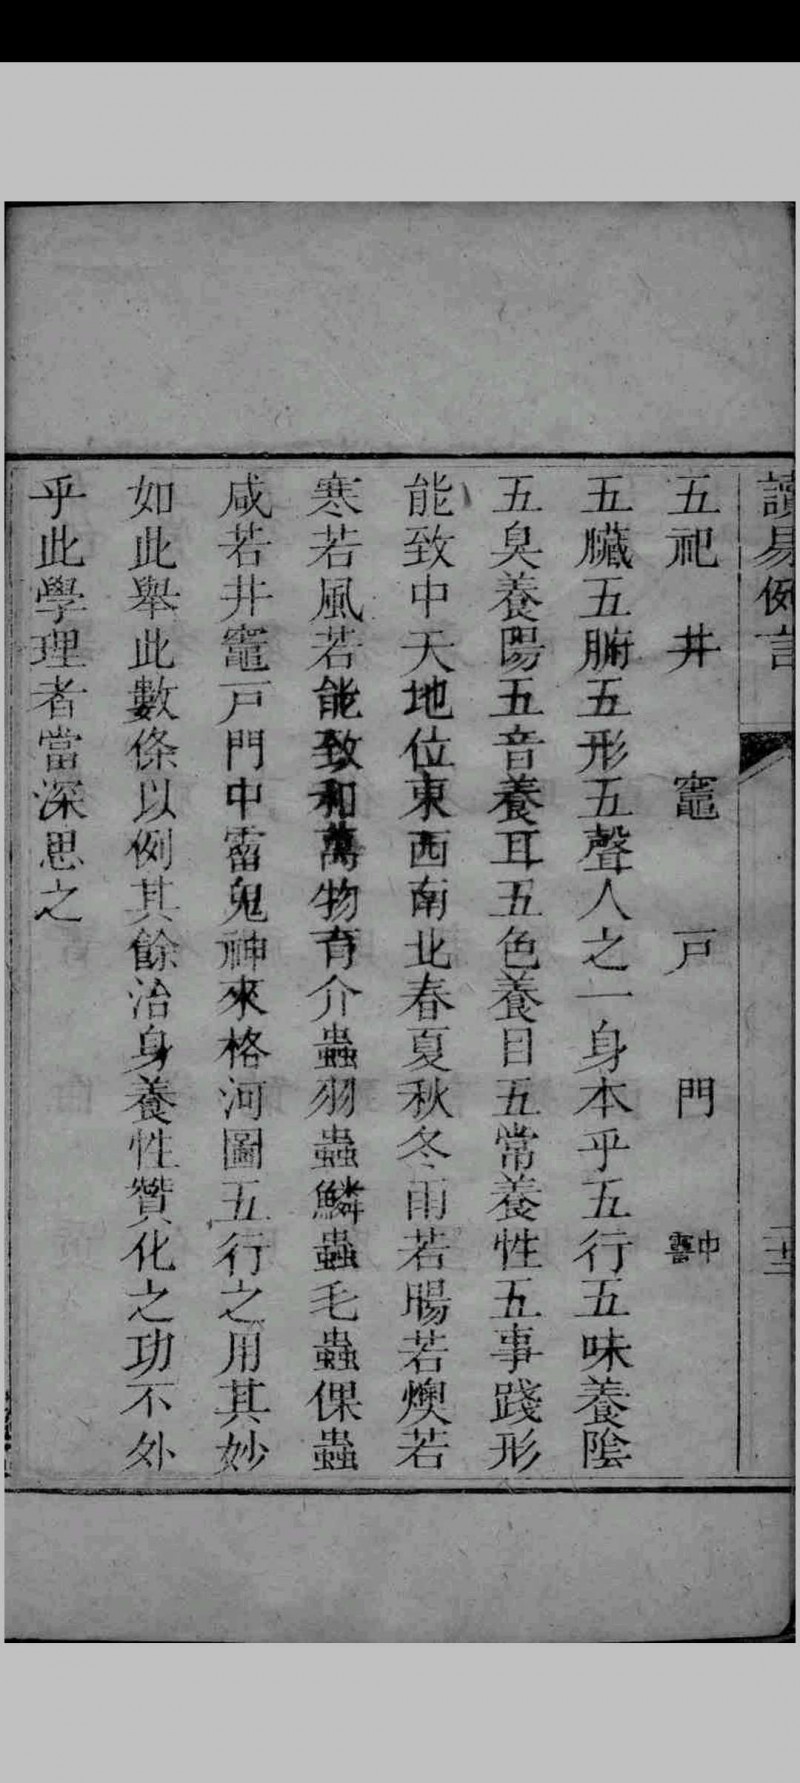 讀易例言
二十三
五祀 井 竈 戸 門 中霤
五臟五腑五形五聲人之一身本乎五行五味養陰
五臭養陽五音養耳五色養目五常養性五事踐形
能致中天地位東西南北春夏秋冬雨若暘若燠若
寒若風若能致和萬物育介蟲羽蟲鱗蟲毛蟲倮蟲
咸若井竈戸門中霤鬼神來格河圖五行之用其妙
如此舉此數條以例其餘治身養性贊化之功不外
乎此學理者當深思之